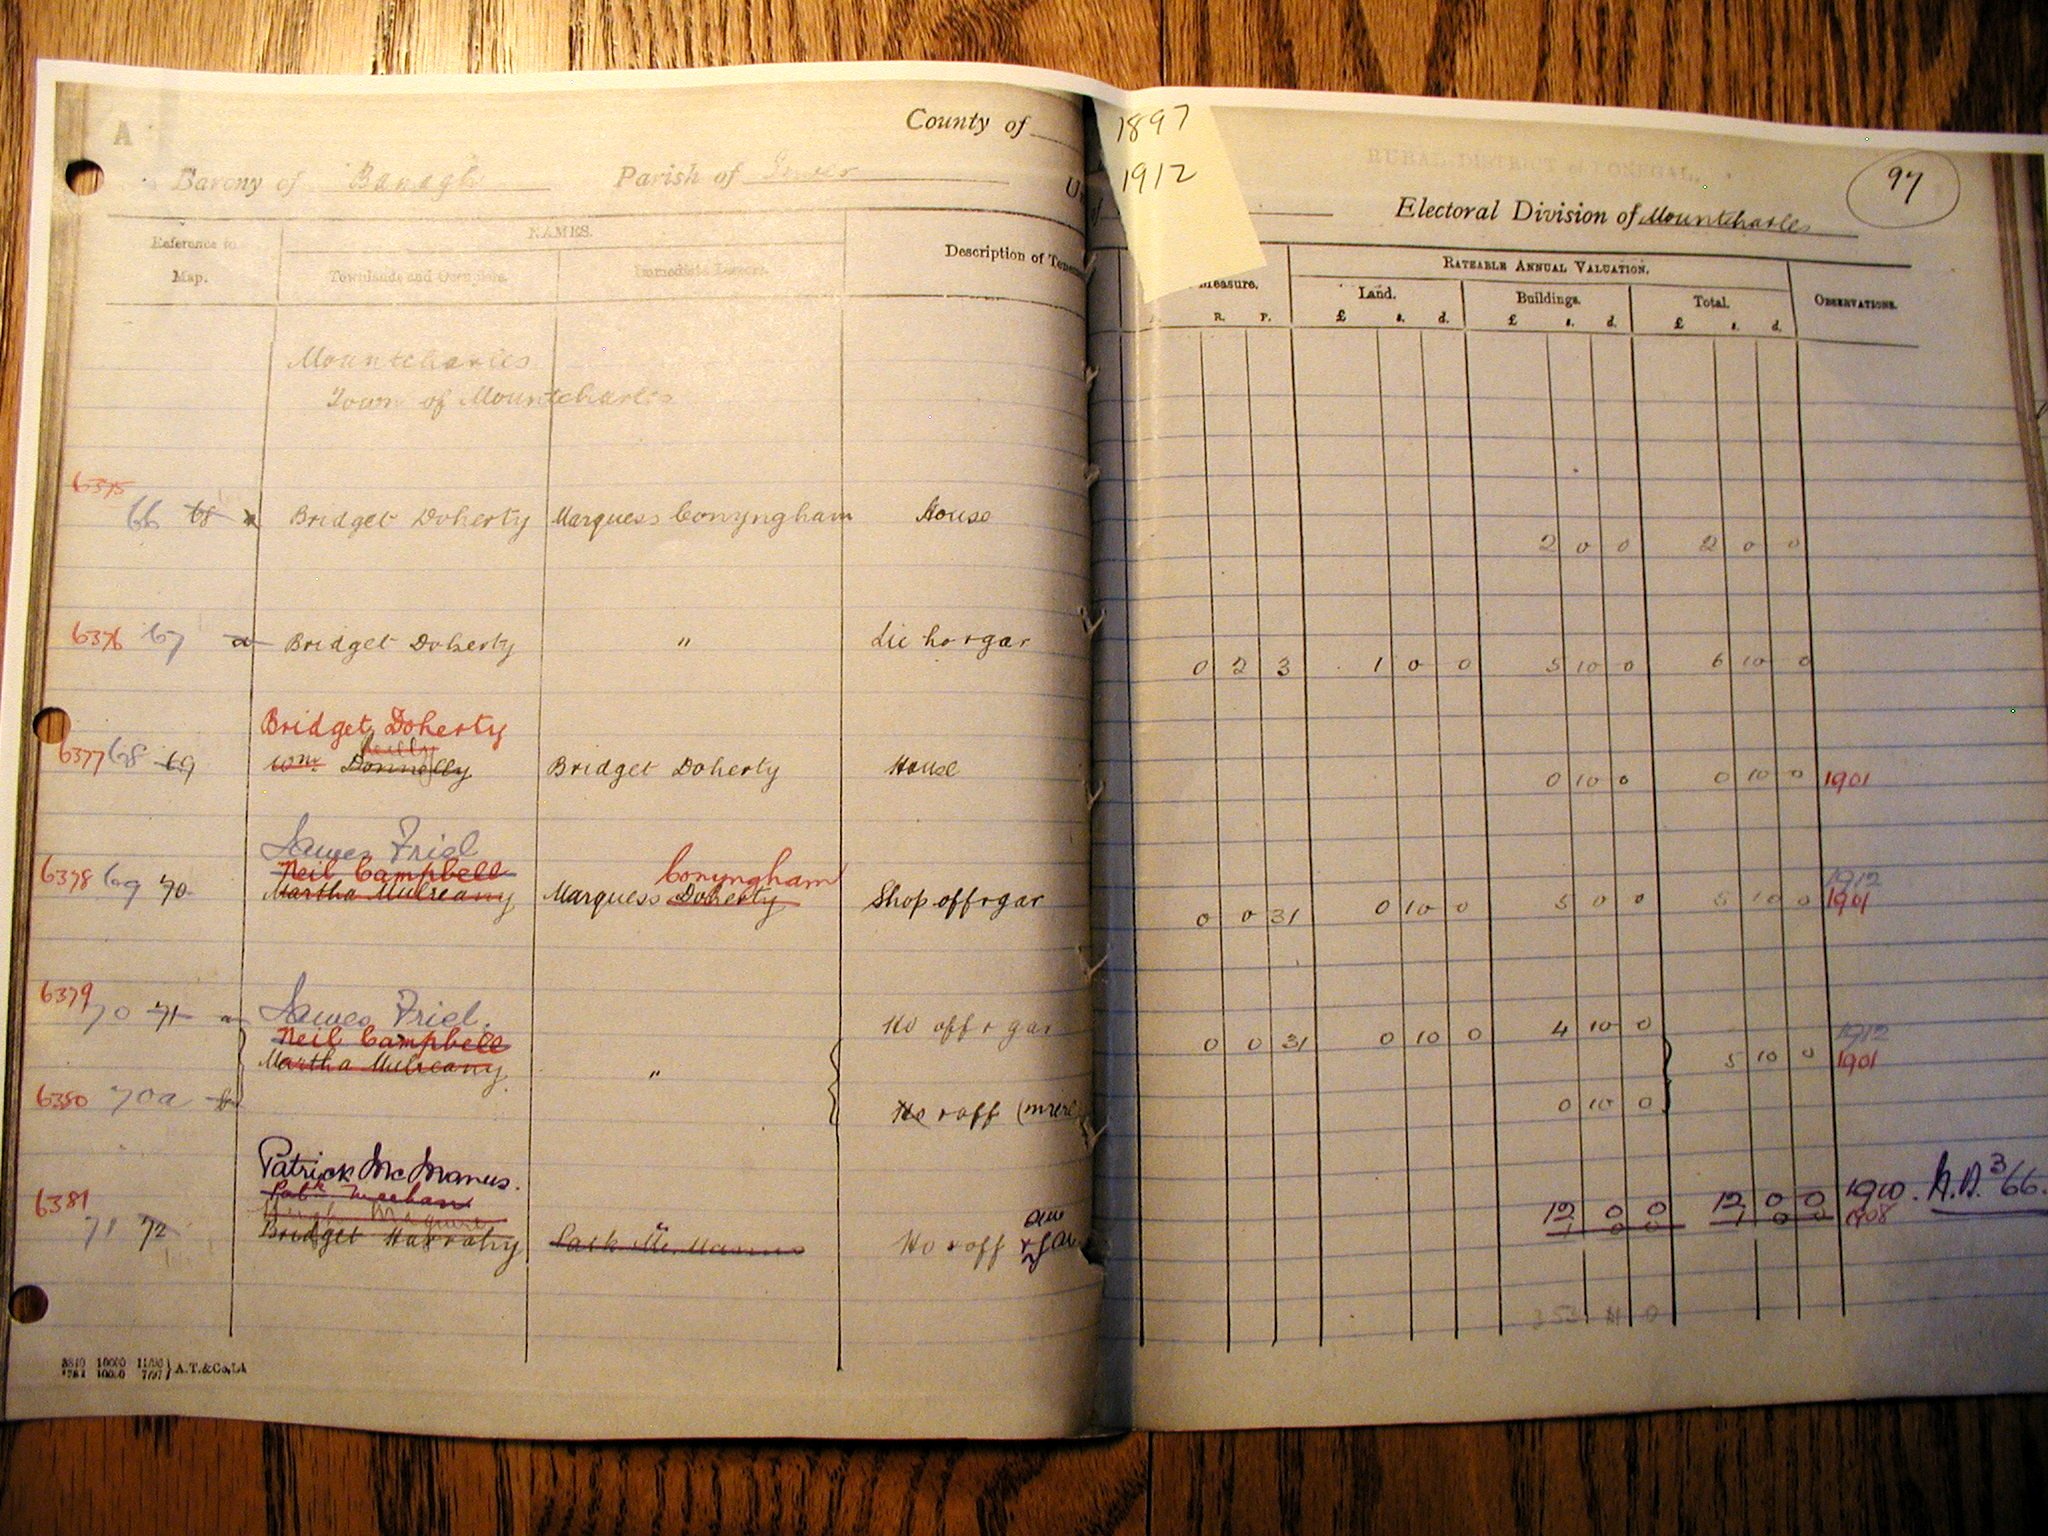 A
County of
1897
1912
RURAL DISTRICT of DONEGAL.
97
Barony of Banagh Parish of Inver
Electoral Division of Mountcharles
Reference to Map.
NAMES.
Townlands and Occupiers.
Immediate Lessors.
Description of Tenement
Measure.
R. P.
RATEABLE ANNUAL VALUATION.
Land.
£ s. d.
Buildings.
£ s. d.
Total.
£ s. d.
OBSERVATIONS.
Mountcharles
Town of Mountcharles
6375
66 68 Bridget Doherty Marquess Conyngham House 2 0 0 2 0 0
6376 67 a Bridget Doherty " Lic ho + gar 0 2 3 1 0 0 5 10 0 6 10 0
Bridget Doherty
Reilly
6377 68 69 Wm. Donnelly Bridget Doherty House 0 10 0 0 10 0 1901
James Friel
Neil Campbell Conyngham 1912
6378 69 70 Martha Mulreany Marquess Doherty Shop off + gar 0 0 31 0 10 0 5 0 0 5 10 0 1901
6379
70 71 a James Friel. Ho off + gar 0 0 31 0 10 0 4 10 0 1912
Neil Campbell
Martha Mulreany " 5 10 0 1901
6380 70a b Ho + off 0 10 0
Patrick McManus.
Patk. Meehan
6381 Hugh Maguire 12 0 0 12 0 0 1910. A.D. 3/66.
71 72 Bridget Harrahy Patk McManus Ho + off + gar 1 0 0 1 0 0 1908
3810 10000 11/96
1781 10000 7/97 } A.T.&Co., Ld